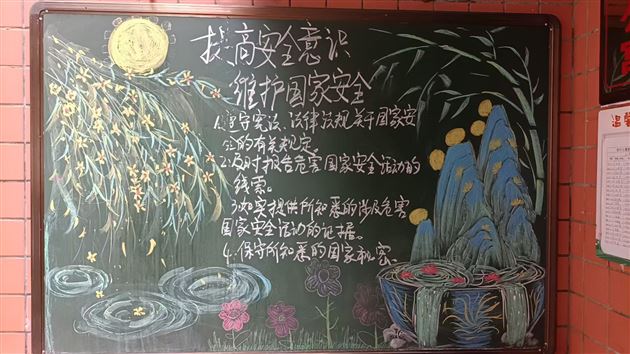 提高安全意识
维护国家安全
1.遵守宪法、法律法规关于国家安
全的有关规定。
2.及时报告危害国家安全活动的
线索。
3.如实提供所知悉的涉及危害
国家安全活动的证据。
4.保守所知悉的国家秘密。
温馨